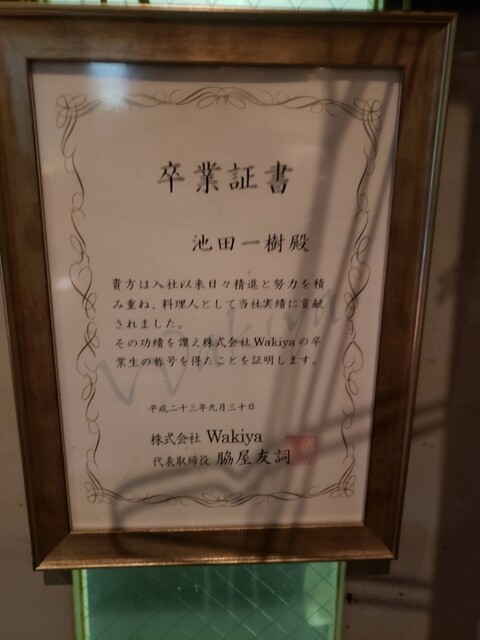 卒業証書
池田一樹殿
貴方は入社以来日々精進と努力を積
み重ね、料理人として当社実績に貢献
されました。
その功績を讃え株式会社Wakiyaの卒
業生の称号を得たことを証明します。
平成二十三年九月三十日
株式会社 Wakiya
代表取締役 脇屋友詞
Wakiya